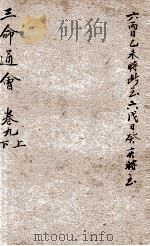 六丙日乙未時斷至六戊日癸亥時至
三命通會 卷九上
下